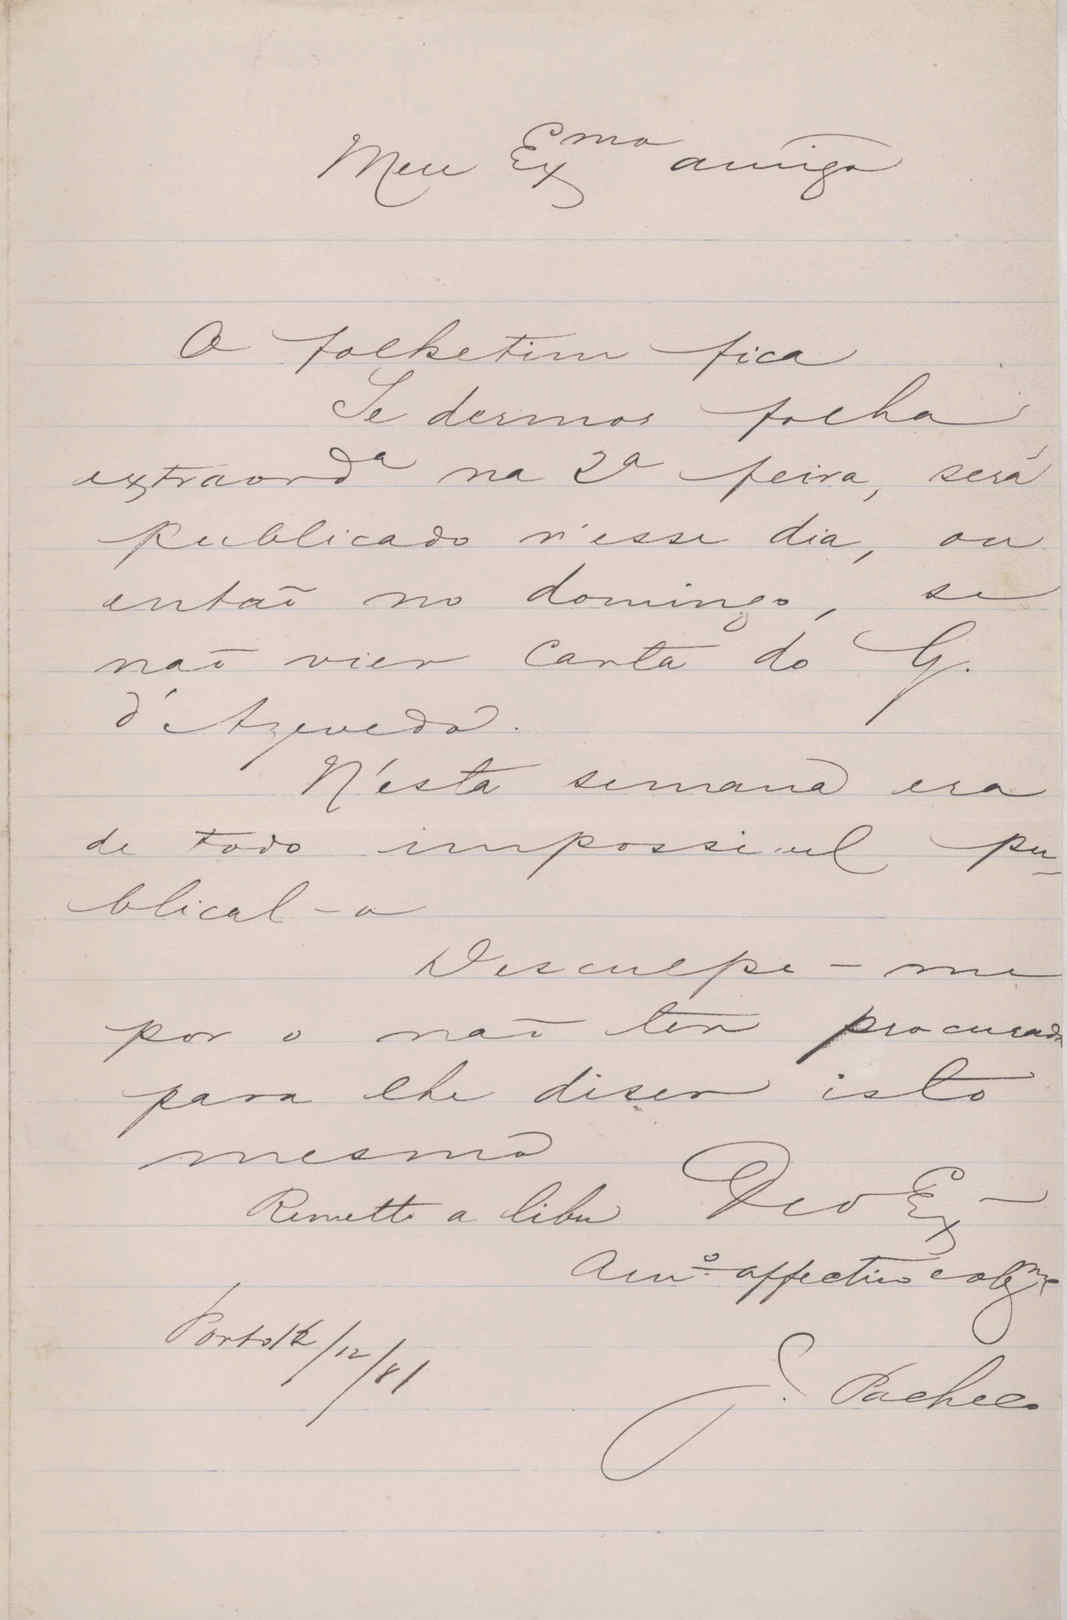 Meu Exmo amigo
O folhetim fica
Se dermos folha
extraorda na 2a feira, será
publicado n'esse dia, ou
então no domingo, se
não vier carta do G.
d'Azevedo.
N'esta semana era
de todo impossivel pu-
blical-o
Desculpe-me
por o não ter procurado
para lhe diser isto
mesmo
Remetto a De V Ex
Amo affectivo e obgmo
Porto 12/12/81
J. Pacheco